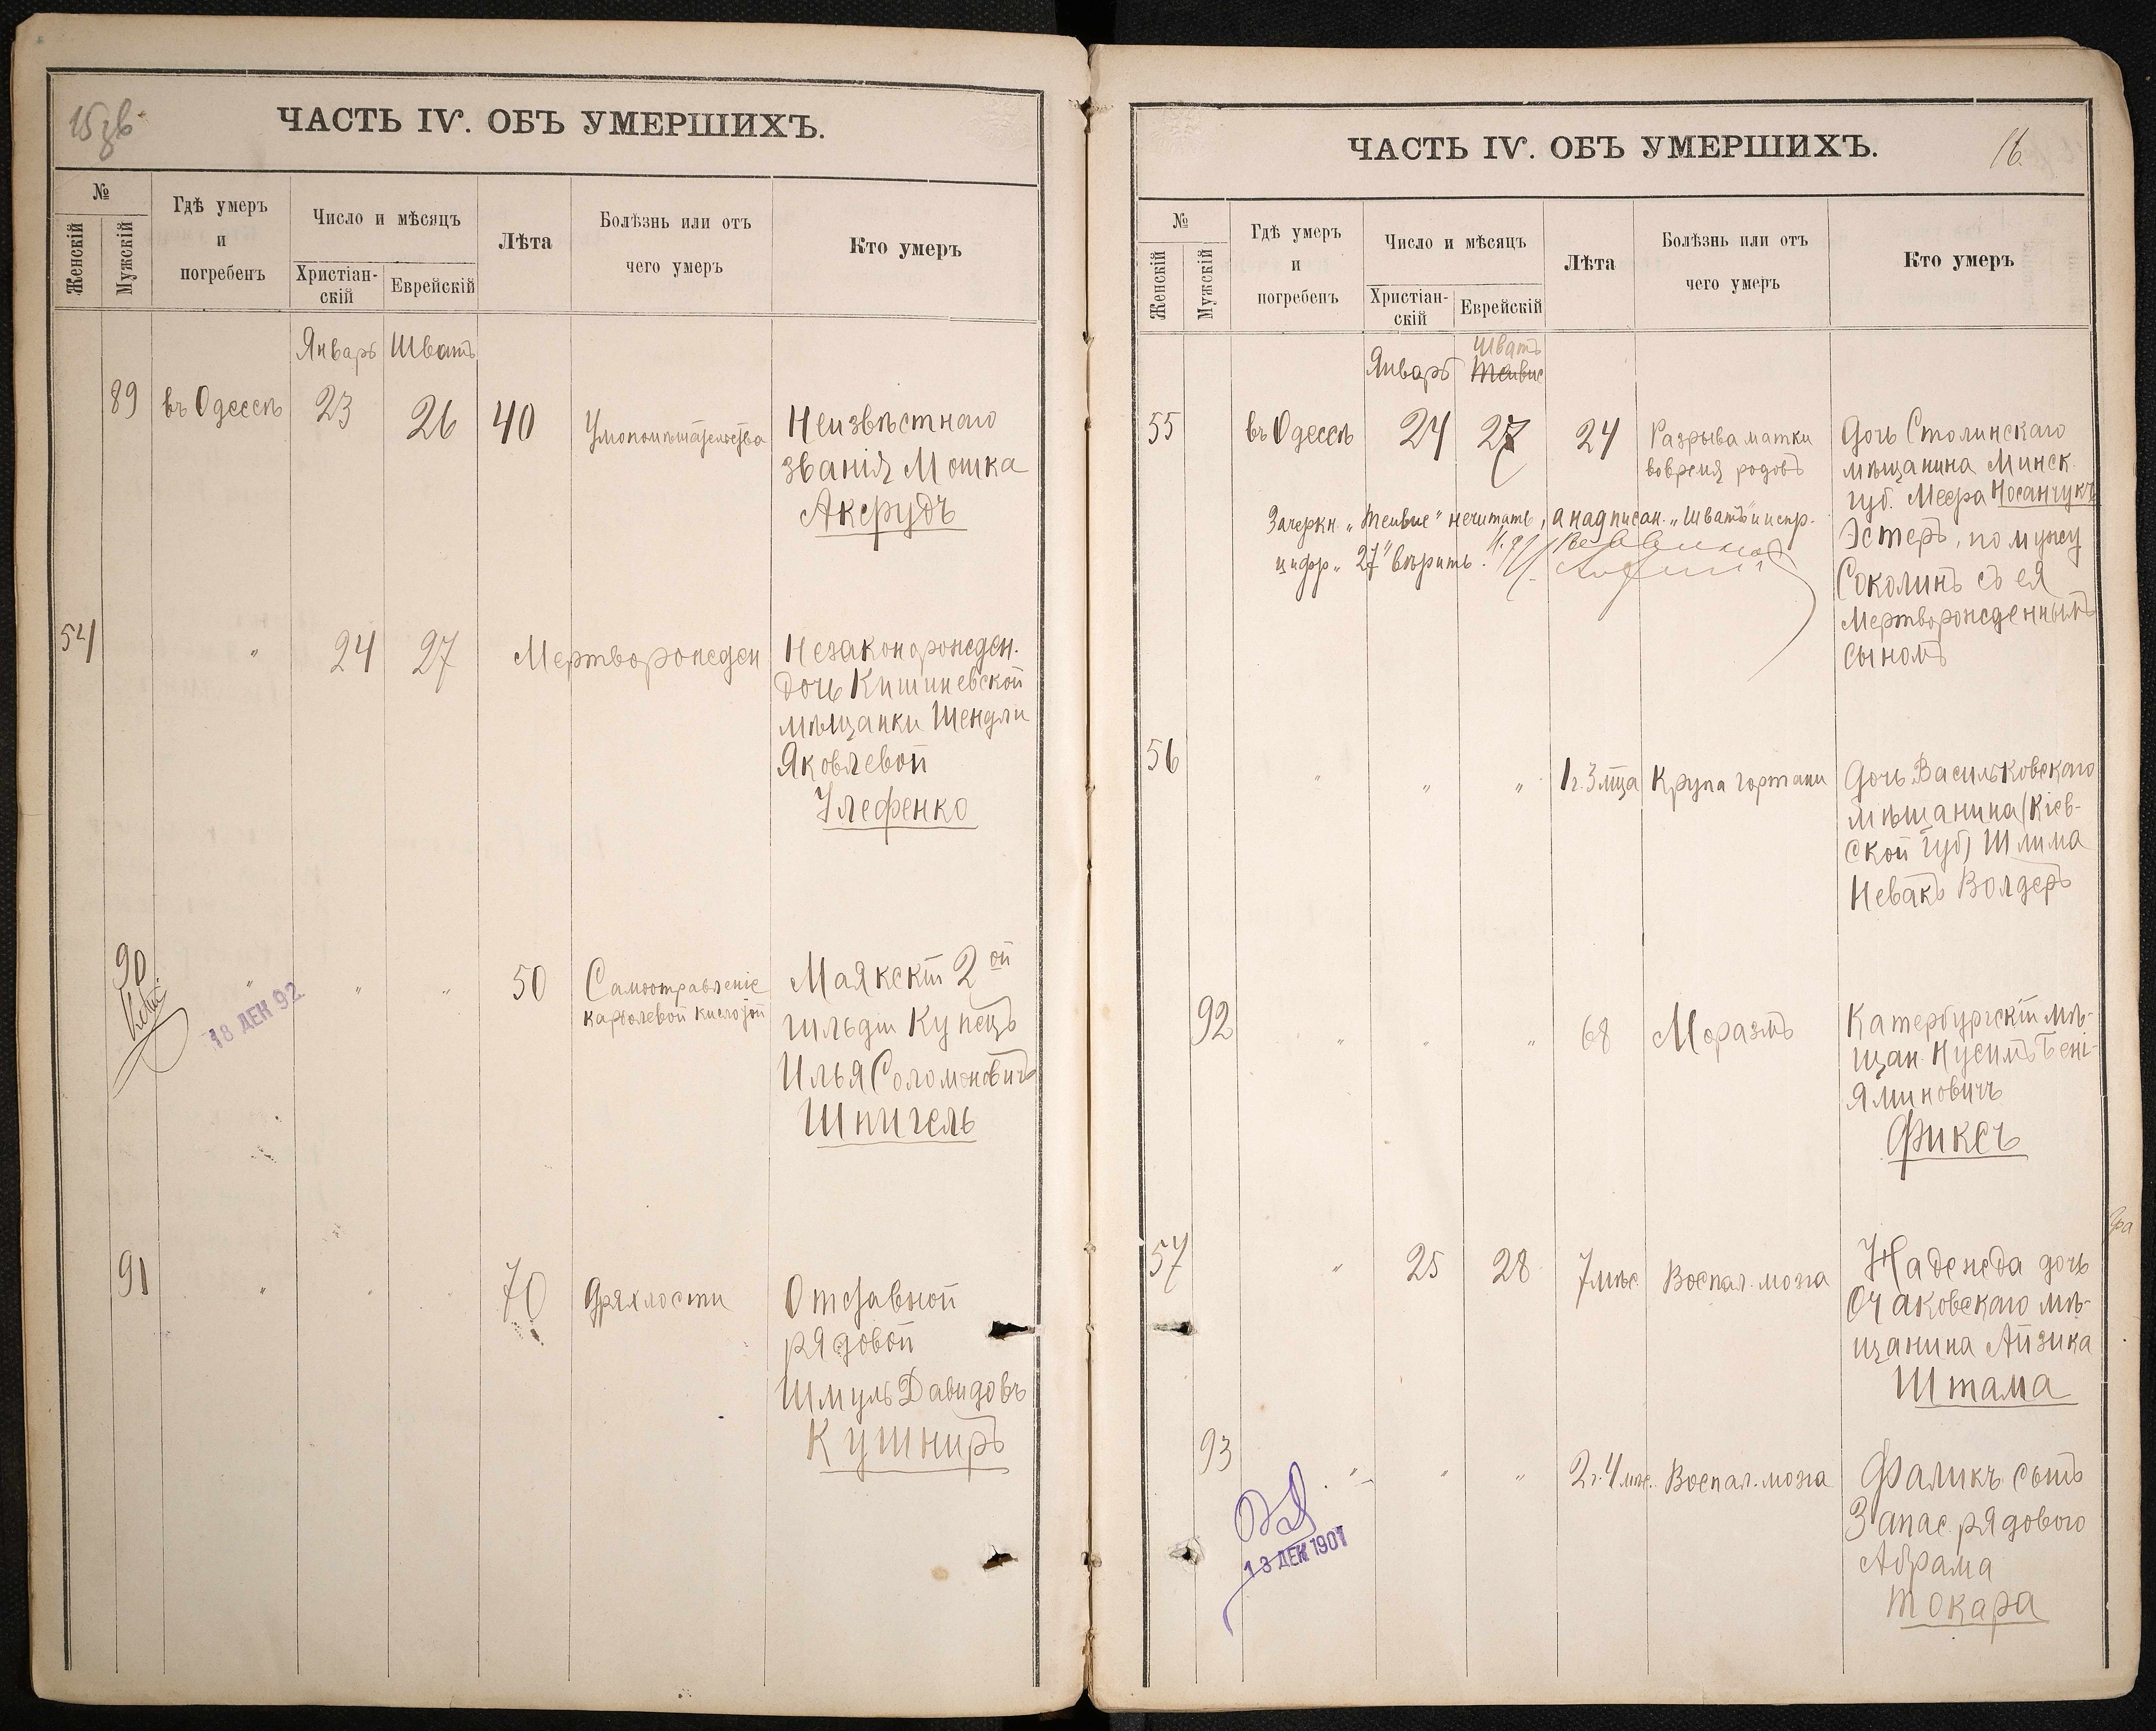 15 об.
ЧАСТЬ IV. ОБЪ УМЕРШИХЪ.
№
Женскій
Мужскій
Гдѣ умеръ
и
погребенъ
Число и мѣсяцъ
Христіан-
скій
Еврейскій
Лѣта
Болѣзнь или отъ
чего умеръ
Кто умеръ
Январь Шватъ
89 въ Одессѣ 23 26 40 Умопомѣшательства Неизвѣстнаго
званія Мошка
Аксрудъ
54 " 24 27 Мертворожден Незаконорожден.
дочь Кишиневской
мѣщанки Шендли
Яковлевой
Улефенко
90 " " " 50 Самоотравленіе Маякскій 2ой
карболевой кислотой гильдіи Купецъ
Илья Соломоновичъ
Шпигель
18 ДЕК 92
91 " " " 70 Дряхлости Отставной
рядовой
Шмуль Давидовъ
Кушниръ
ЧАСТЬ IV. ОБЪ УМЕРШИХЪ.
16.
№
Женскій
Мужскій
Гдѣ умеръ
и
погребенъ
Число и мѣсяцъ
Христіан-
скій
Еврейскій
Лѣта
Болѣзнь или отъ
чего умеръ
Кто умеръ
Шватъ
Январь Тейвис
55 въ Одессѣ 24 27 24 Разрыва матки Дочь Столинскаго
вовремя родовъ мѣщанина Минск.
губ. Меера Носанчукъ
Эстеръ, по мужу
Соколинъ съ ея
Мертворожденнымъ
сыномъ
Зачеркн. „Тейвис" нечитать, а надписан. „Шватъ" и испр.
цифр „27" вѣрить.
56 " " " 1 г. 3 м-ца Крупа гортани Дочь Васильковскаго
мѣщанина (Кіев-
ской губ) Шлима
Невакъ Волдеръ
92 " " " 68 Моразмъ Катербургскій мѣ-
щан. Нусимъ Бені-
яминовичъ
Фиксъ
57 " 25 28 7 мѣс Воспал. мозга Надежда дочь
Очаковскаго мѣ-
щанина Айзика
Штама
93 " " " 2 г. 4 мѣс. Воспал. мозга Фаликъ сынъ
Запас. рядового
Абрама
Токара
13 ДЕК 1901